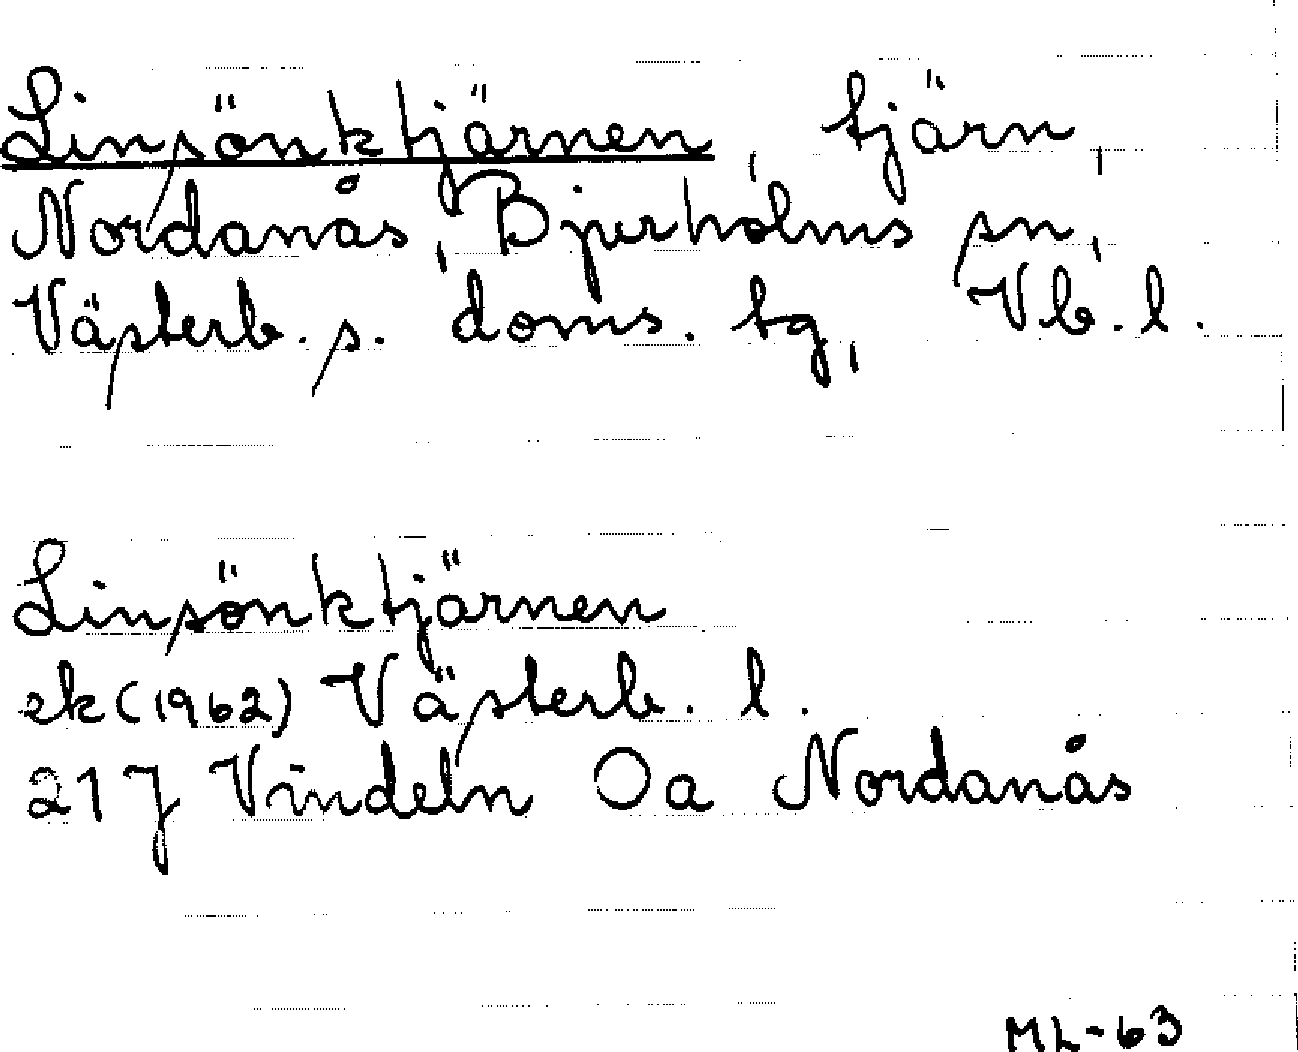 Linsönktjärnen, tjärn,
Nordanås, Bjurholms sn,
Västerb. s. doms. tg, Vb. l.
Linsönktjärnen
ek (1962) Västerb. l.
21 J Vindeln Oa Nordanås
ML-63